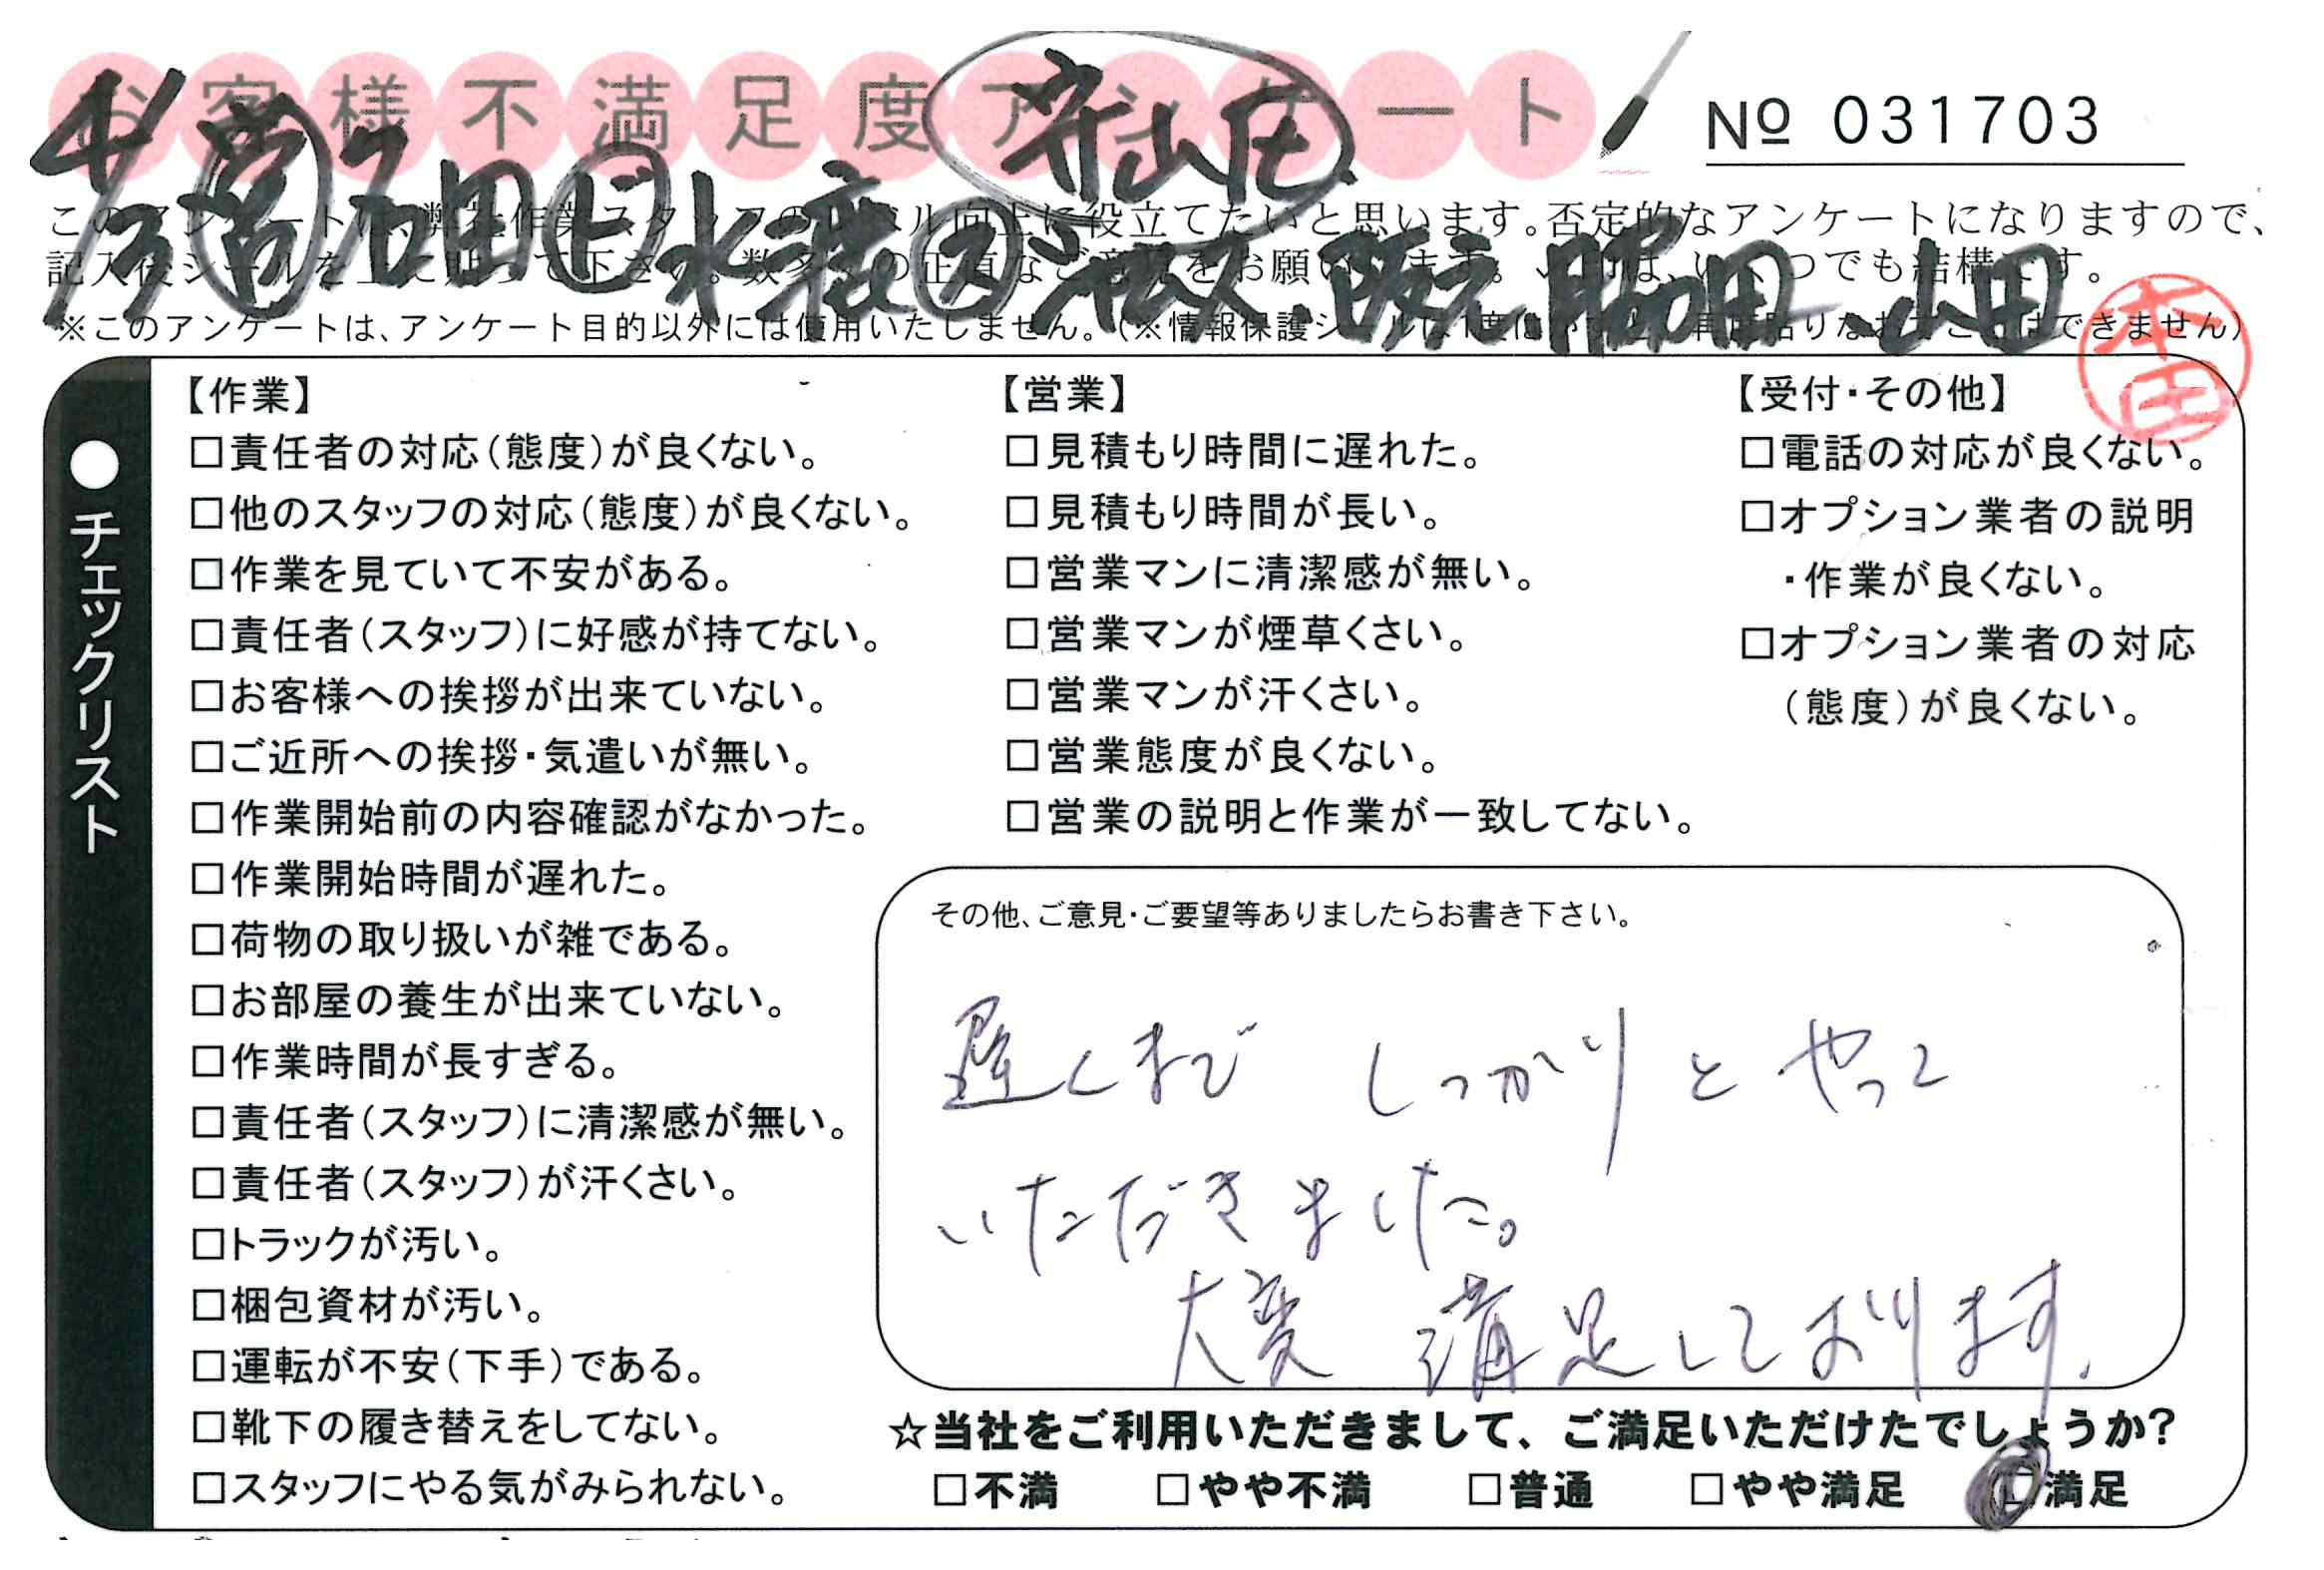 お客様不満足度アンケート
№ 031703
4/3 営 戸田 ド 水渡 ス 池又、阪元 脇田、山田
このアンケートは、弊社作業スタッフのレベル向上に役立てたいと思います。否定的なアンケートになりますので、
記入後シールを上に貼って下さい。数多くの正直なご意見をお願いします。✓印は、いくつでも結構です。
※このアンケートは、アンケート目的以外には使用いたしません。(※情報保護シールは1度はがすと、再度貼りなおすことはできません)
本田
●チェックリスト
【作業】
□責任者の対応(態度)が良くない。
□他のスタッフの対応(態度)が良くない。
□作業を見ていて不安がある。
□責任者(スタッフ)に好感が持てない。
□お客様への挨拶が出来ていない。
□ご近所への挨拶・気遣いが無い。
□作業開始前の内容確認がなかった。
□作業開始時間が遅れた。
□荷物の取り扱いが雑である。
□お部屋の養生が出来ていない。
□作業時間が長すぎる。
□責任者(スタッフ)に清潔感が無い。
□責任者(スタッフ)が汗くさい。
□トラックが汚い。
□梱包資材が汚い。
□運転が不安(下手)である。
□靴下の履き替えをしてない。
□スタッフにやる気がみられない。
【営業】
□見積もり時間に遅れた。
□見積もり時間が長い。
□営業マンに清潔感が無い。
□営業マンが煙草くさい。
□営業マンが汗くさい。
□営業態度が良くない。
□営業の説明と作業が一致してない。
【受付・その他】
□電話の対応が良くない。
□オプション業者の説明
・作業が良くない。
□オプション業者の対応
(態度)が良くない。
その他、ご意見・ご要望等ありましたらお書き下さい。
遅くまで しっかりとやって
いただきました。
大変 満足しております.
☆当社をご利用いただきまして、ご満足いただけたでしょうか?
□不満 □やや不満 □普通 □やや満足 □満足